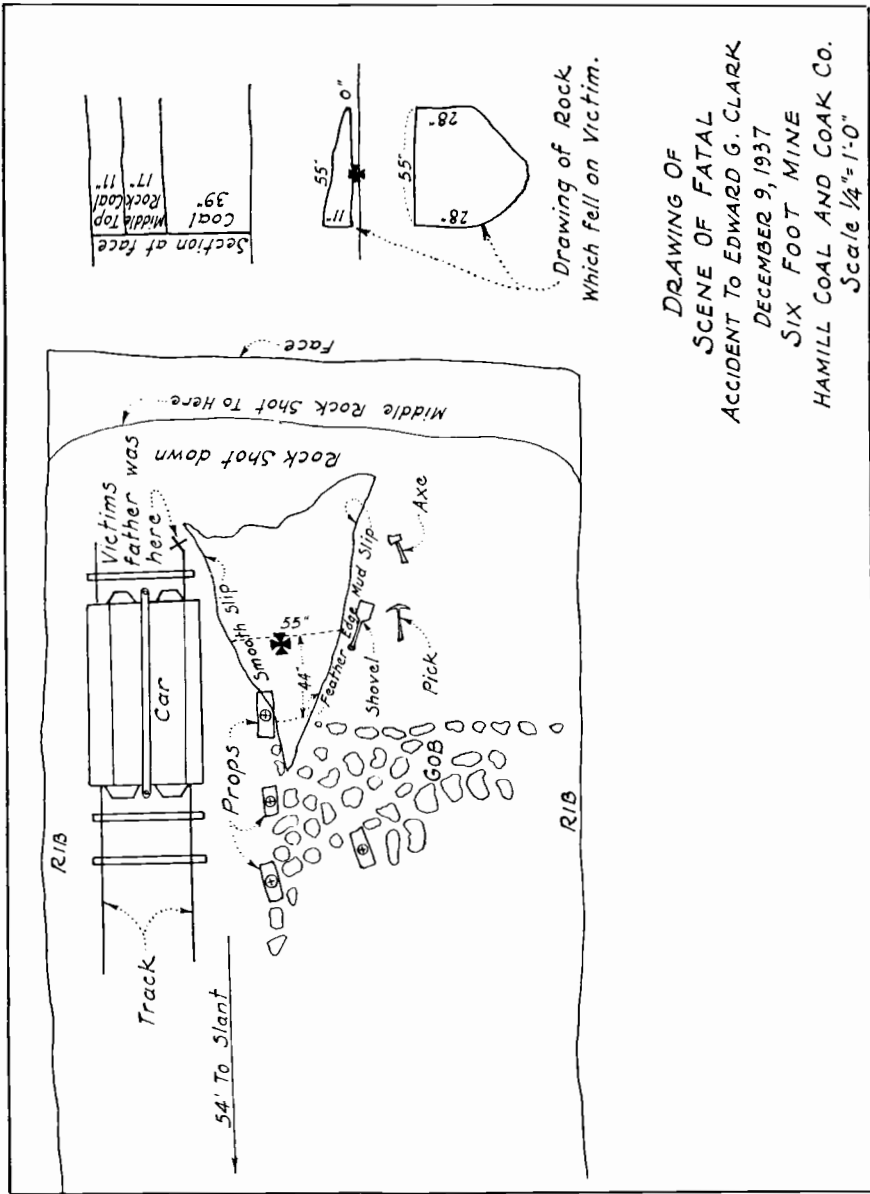 DRAWING OF
SCENE OF FATAL
ACCIDENT TO EDWARD G. CLARK
DECEMBER 9, 1937
SIX FOOT MINE
HAMILL COAL AND COAK CO.
Scale 1/4"=1'-0"
Section at face
Top
Coal
11"
Middle
Rock
17"
Coal
39"
55"
11"
0"
55"
28"
28"
Drawing of Rock
Which fell on Victim.
Face
Middle Rock Shot To Here
Rock Shot down
Victims
father was
here
X
RIB
Car
Track
54' To Slant
Props
Smooth Slip
55"
44"
Feather Edge Mud Slip
Shovel
Axe
Pick
GOB
RIB